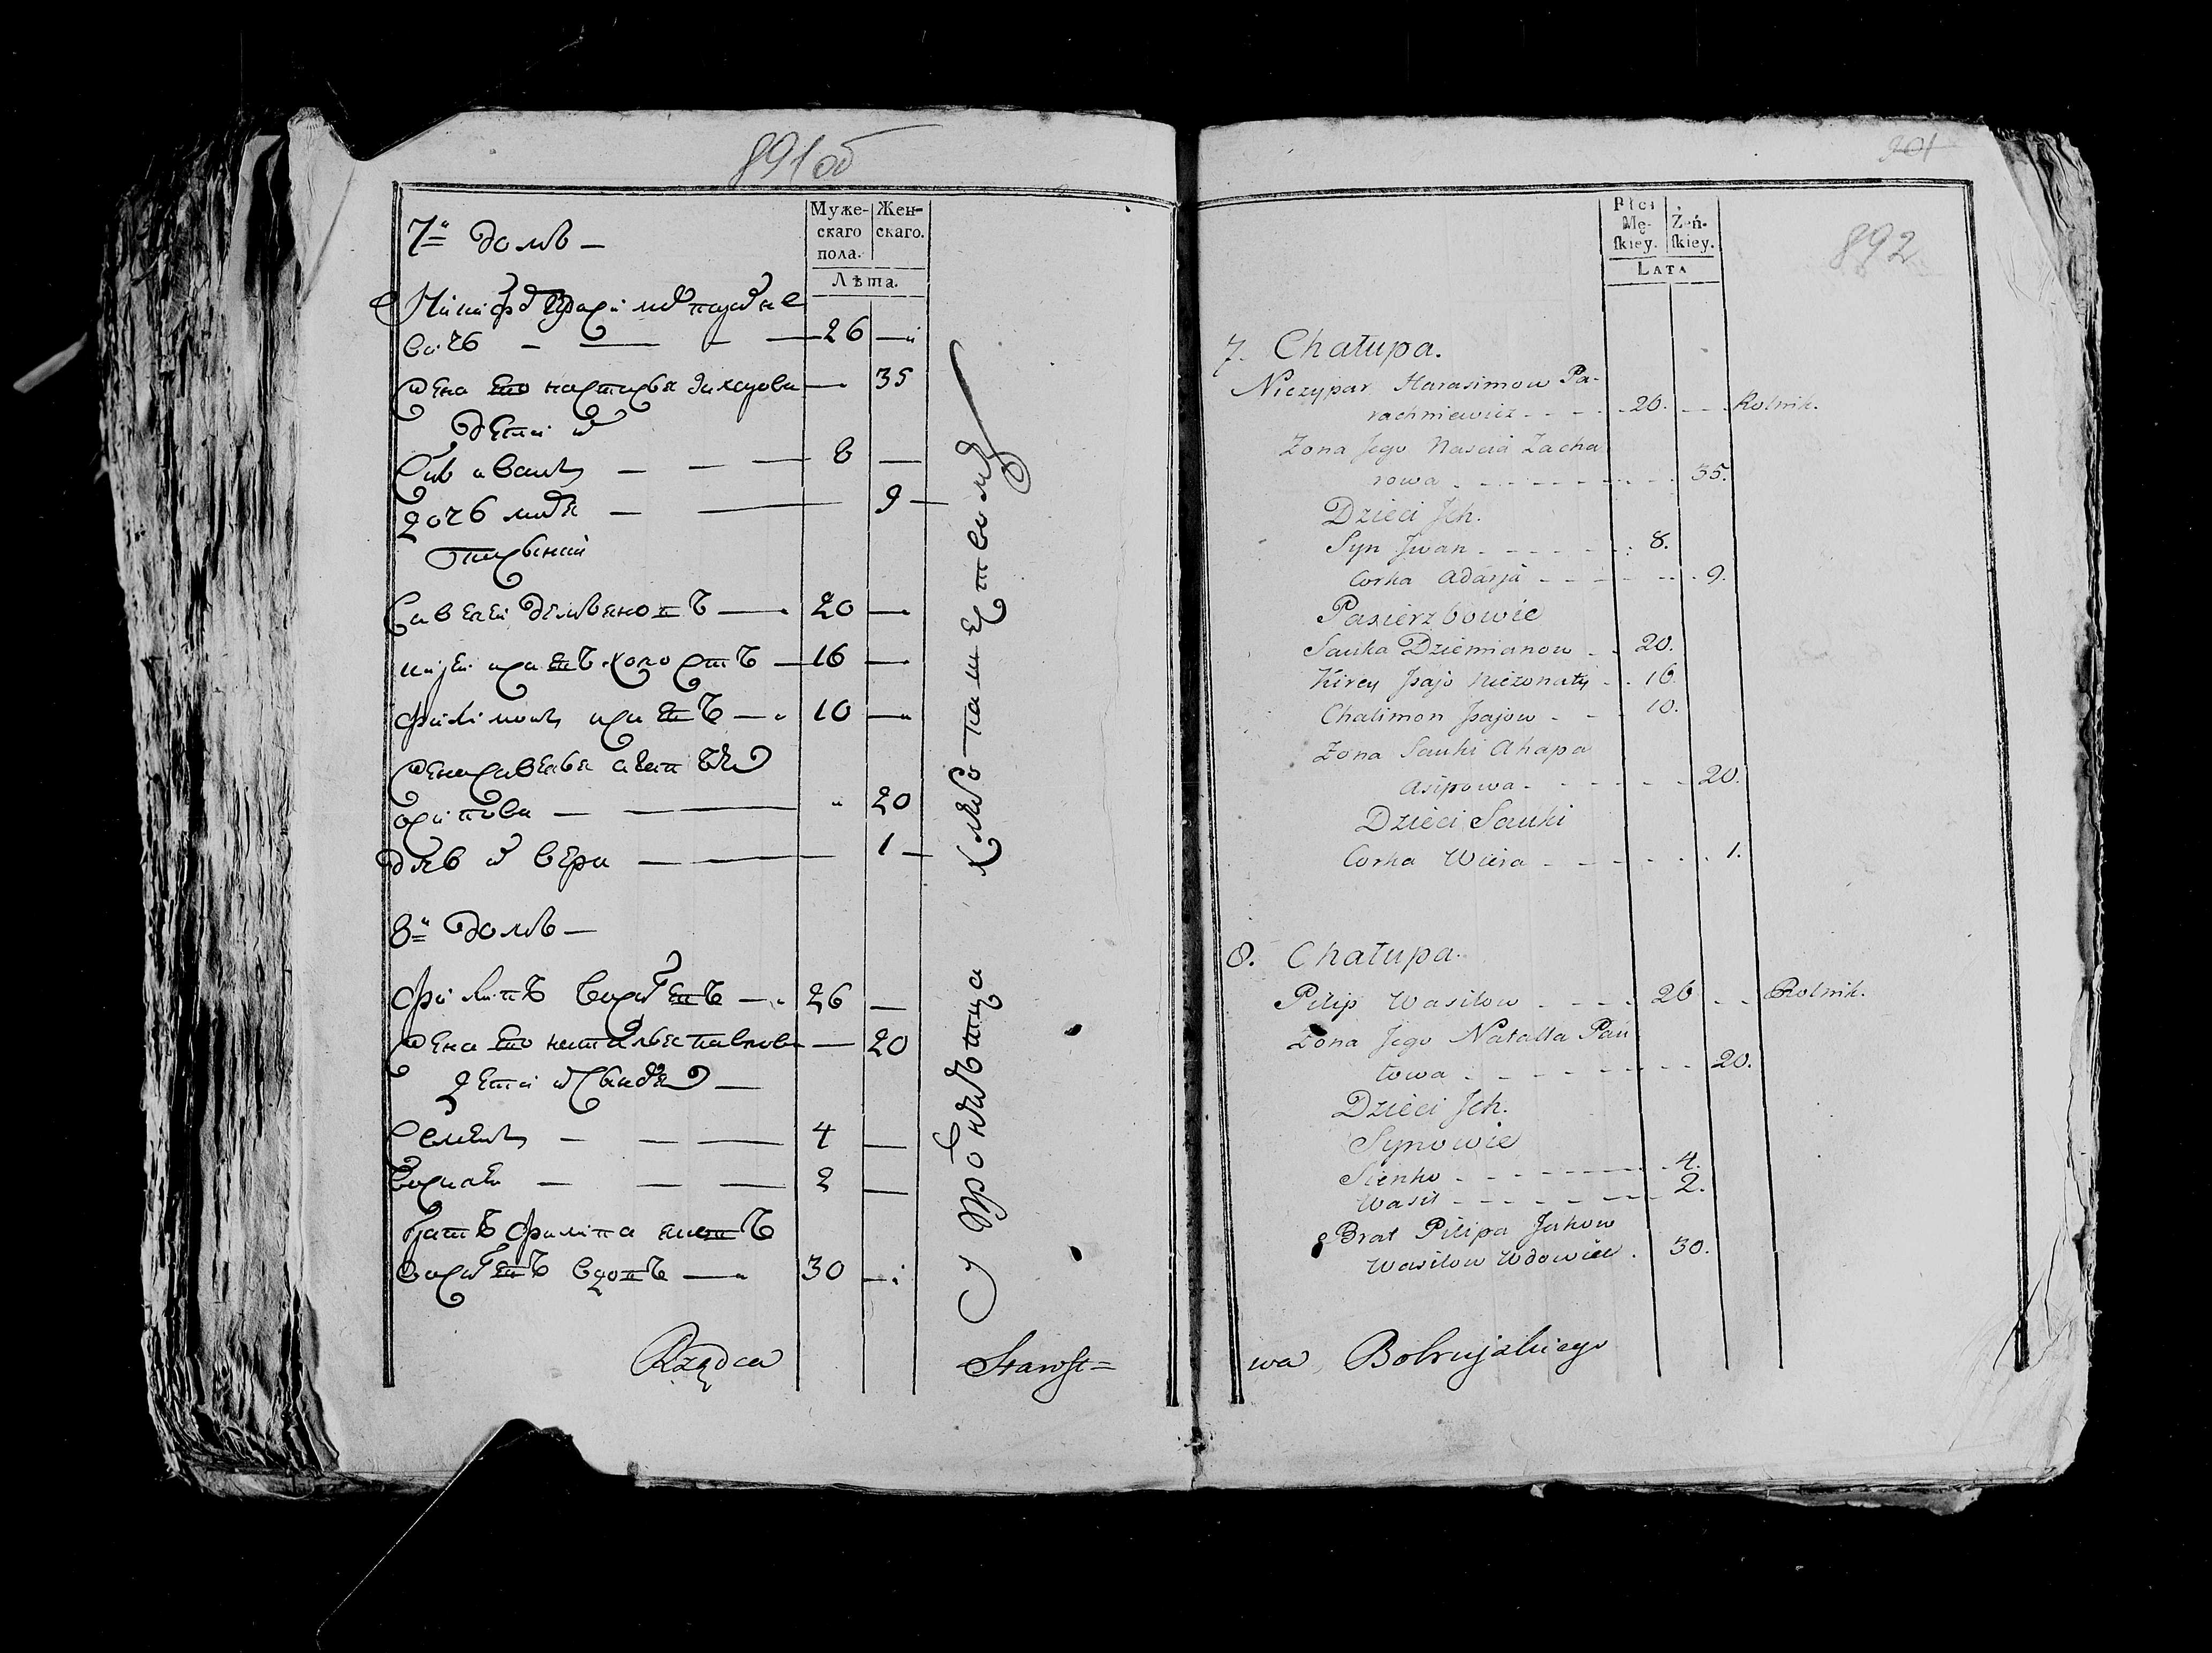 891об
Муже-
скаго
пола.
Жен-
скаго.
Лѣта.
7й домъ —
вичъ — — — 26 —
жена его настасья захарова — 35
дети их
Сынъ иванъ — — — 8 —
дочь — — 9 —
пасынки
Савелей демьяновъ — 20 —
кирей холостъ — 16 —
филимонъ — 10 —
жена савелья агапья
осипова — — 20
дочь их вера — — 1 —
8й домъ —
филипъ васильевъ — 26 —
жена его наталья павлова — 20
дети их сыновья —
Семенъ — — — 4 —
василей — — — 2 —
братъ филипа яковъ
васильевъ вдовъ — 30 —
Rządca Starost=
901
892
Płci
Mę-
skiey.
Żeń-
skiey.
LATA
7. Chałupa.
Niczypar Harasimow Pa-
rachniewicz - - - - 26. - - - Rolnik.
Żona Jego Nascia Zacha
rowa - - - - - - - - - 35.
Dzieci Jch.
Syn Jwan - - - - - - 8.
Corka Adarja - - - - - - 9.
Pasierzbowie
Sauka Dziemianow - - 20.
Kirey Jsajo nieżonaty - - 16
Chalimon Jsajow - - - 10.
Żona Sauki Ahapa
Asipowa - - - - - - 20.
Dzieci Sauki
Corka Wiera - - - - - - 1.
8. Chałupa.
Pilip Wasilow - - - - 26 - - Rolnik.
Żona Jego Natalla Pau
łowa - - - - - - - - - 20.
Dzieci Jch.
Synowie
Sienko - - - - - - - - 4.
Wasil - - - - - - - - 2.
Brat Pilipa Jakow
Wasilow Wdowiec . 30.
wa Bobrujskiego